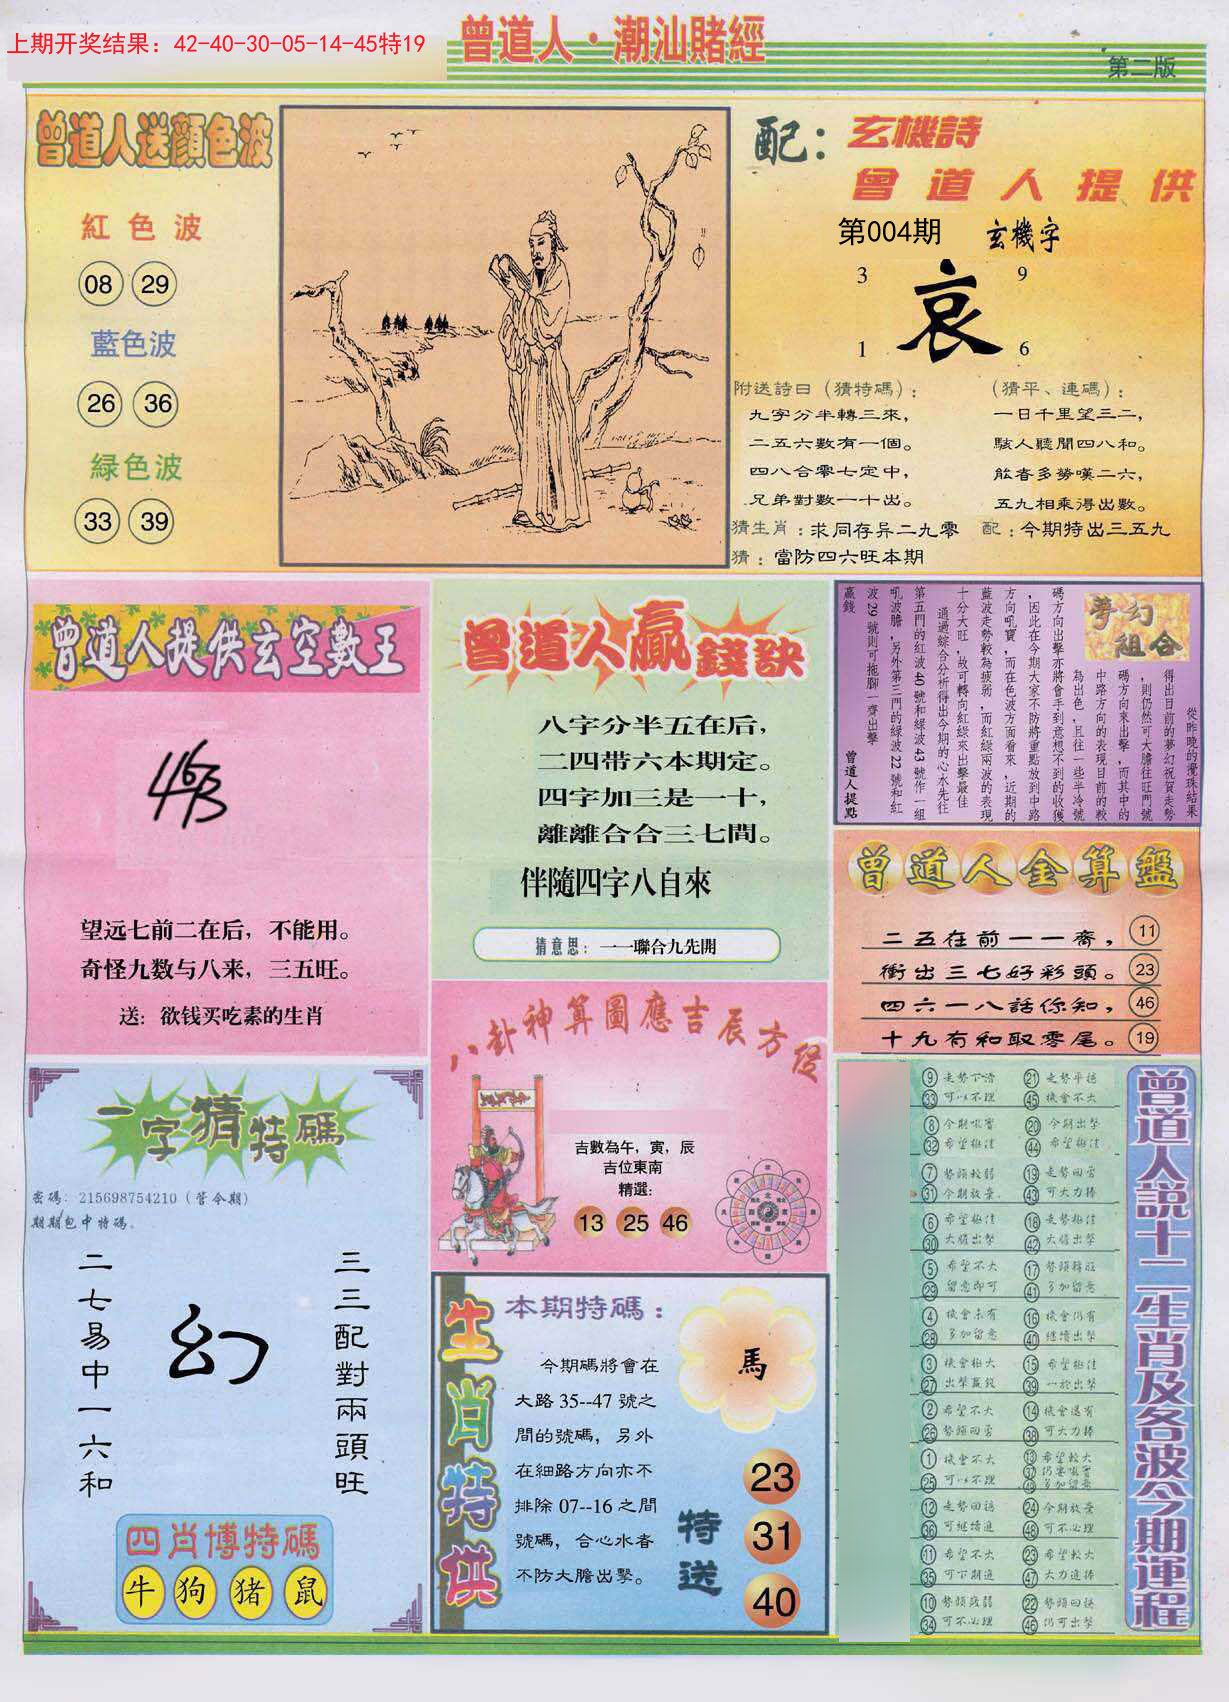 上期开奖结果：42-40-30-05-14-45特19
曾道人·潮汕賭經
第二版
曾道人送顏色波
紅色波
08 29
藍色波
26 36
緑色波
33 39
配：玄機詩
曾道人提供
第004期 玄機字
3 9
哀
1 6
附送詩曰（猜特碼）：
九字分半轉三來，
二五六數有一個。
四八合零七定中，
兄弟對數一十出。
（猜平、連碼）：
一日千里望三二，
駭人聽聞四八和。
能者多勞嘆二六，
五九相乘得出數。
猜生肖：求同存异二九零
配：今期特出三五九
猜：當防四六旺本期
曾道人提供玄空數王
463
望远七前二在后，不能用。
奇怪九数与八来，三五旺。
送：欲钱买吃素的生肖
曾道人贏錢訣
八字分半五在后，
二四带六本期定。
四字加三是一十，
離離合合三七間。
伴隨四字八自來
猜意思：一一聯合九先開
夢幻組合
從昨晚的攪珠結果
得出目前的夢幻祝賀走勢
，則仍然可大膽往旺門號
碼方向來出擊，而其中的
中路方向的表現目前的較
為出色，且往一些半冷號
碼方向出擊亦將會手到意想不到的收獲
，因此在今期大家不防將重點放到中路
方向吼寶，而在色波方面看來，近期的
藍波走勢較為疲弱，而紅綠兩波的表現
十分大旺，故可轉向紅綠來出擊最佳
通過綜合分析得出今期的心水先往
第五門的紅波40號和綠波43號作一組
吼波膽，另外第三門的綠波22號和紅
波29號則可拖腳一齊出擊
贏錢
曾道人提點
曾道人金算盤
二五在前一一齋， 11
衝出三七好彩頭。 23
四六一八話你知， 46
十九有和取零尾。 19
八卦神算圖應吉辰方位
吉數為午，寅，辰
吉位東南
精選:
13 25 46
一字猜特碼
密碼：215698754210（管今期）
期期包中特碼。
二七易中一六和
幻
三三配對兩頭旺
四肖博特碼
牛 狗 猪 鼠
生肖特供
本期特碼：
今期碼將會在
大路35--47號之
間的號碼，另外
在細路方向亦不
排除07--16之間
號碼，合心水者
不防大膽出擊。
馬
特送
23
31
40
曾道人説十二生肖及各波今期運程
9 走勢下滑 21 走勢平穩
33 可以不理 45 機會不大
8 今期吼實 20 今期出擊
32 希望極佳 44 希望極佳
7 勢頭較弱 19 走勢回勇
31 今期放棄 43 可大力捧
6 希望極佳 18 走勢極佳
30 大膽出擊 42 大膽出擊
5 希望不大 17 勢頭轉旺
29 留意即可 41 多加留意
4 機會未有 16 機會仍有
28 多加留意 40 繼續出擊
3 機會極大 15 希望極佳
27 出擊贏錢 39 一於出擊
2 希望不大 14 機會還有
26 勢頭回勇 38 可大力捧
1 機會不大 13 希望較大
25 可以不理 37 仍要吼實
49 多加留意
12 走勢回穩 24 今期放棄
36 可繼續追 48 可不必理
11 希望不大 23 希望較大
35 可下期追 47 大力追捧
10 勢頭疲弱 22 勢頭回穩
34 可不必理 46 仍可出擊